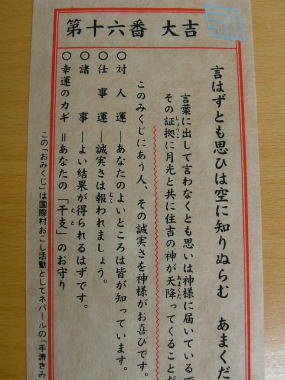 第十六番 大吉
言はずとも思ひは空に知りぬらむ あまくだ
言葉に出して言わなくとも思いは神様に届いている
その証拠に月光と共に住吉の神が天降ってくることが
このみくじにあう人、その誠実さを神様がお喜びです。
○対人運―あなたのよいところは皆が知っています。
○仕事運―誠実さは報われましょう。
○諸事―よい結果が得られるはずです。
○幸運のカギ＝あなたの「干支」のお守り
この「おみくじ」は国際村おこし活動としてネパールの「手漉きみ